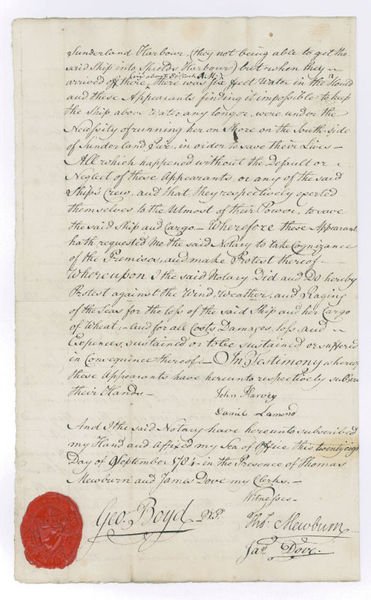 Sunderland Harbour (they not being able to get the
said Ship into Shields Harbour) but when they
arrived off there, there was six feet Water in the
and these Appearants finding it impossible to keep
the Ship above Water any longer, were under the
Necessity of running her on Shore on the South side
of Sunderland in order to save their Lives —
All which happened without the Default or
Neglect of these Appearants or any of the said
Ship's Crew, and that they respectively exerted
themselves to the Utmost of their Power, to save
the said Ship and Cargo — Wherefore these Appearant
hath requested Me the said Notary to take Cognizance
of the Premises, and make Protest thereof —
Whereupon I the said Notary Did and Do hereby
Protest against the Wind, Weather, and Raging
of the Seas for the loss of the said Ship and her Cargo
of Wheat, And for all Costs, Damages, loss and
Expences, sustained or to be sustained or suffered
in Consequence thereof — In Testimony whereof
these Appearants have hereunto respectively subscribed
their Hands —
John Harvey
Daniel Lamond
And I the said Notary have hereunto subscribed
my Hand and affixed my Seal of Office this twenty
Day of September 1784 in the Presence of Thomas
Mewburn and James Dove my Clerks —
Witnesses —
Geo. Boyd
Thos. Mewburn
Jas. Dove